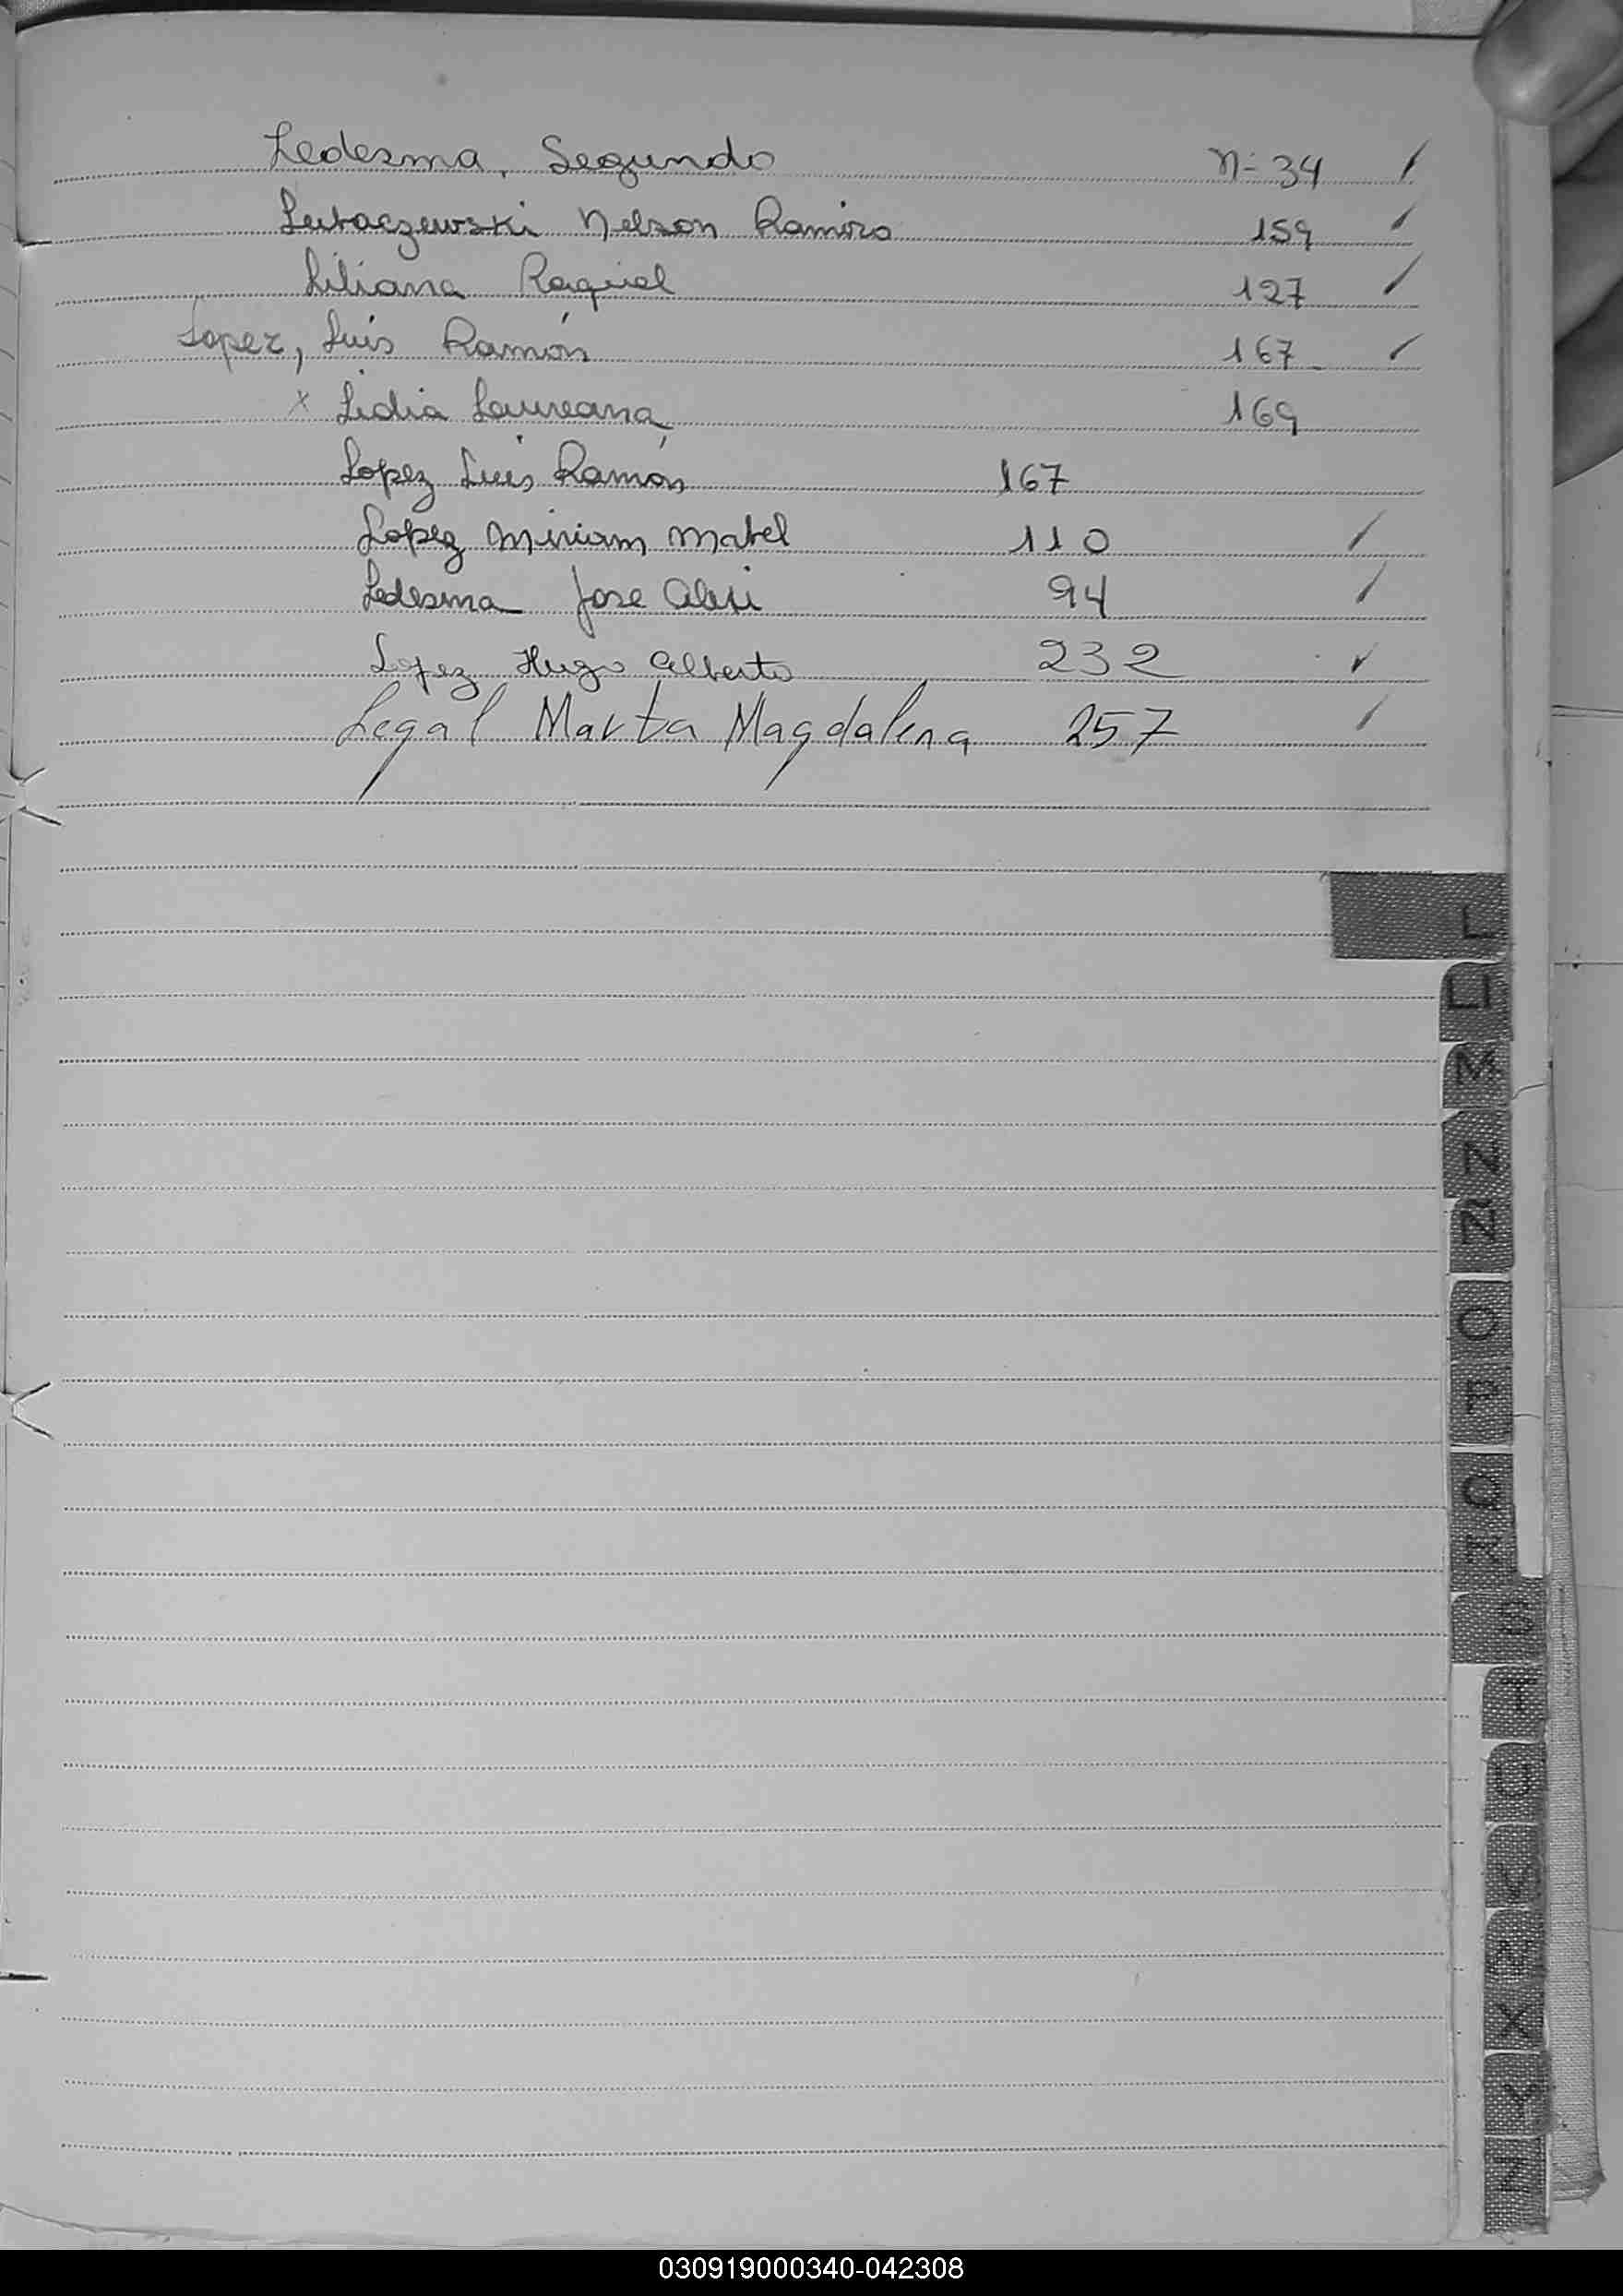 Ledesma, Segundo N= 34 /
Nelson Ramiro 159 /
Liliana Raquel 127 /
Lopez, Luis Ramón 167 /
x Lidia Laureana 169
Lopez Luis Ramón 167
Lopez Miriam Mabel 110 /
Ledesma Jose 94 /
Lopez Hugo Alberto 232 ✓
Legal Marta Magdalena 257 /
L
Ll
M
N
Ñ
O
P
Q
R
S
T
U
V
W
X
Y
Z
030919000340-042308